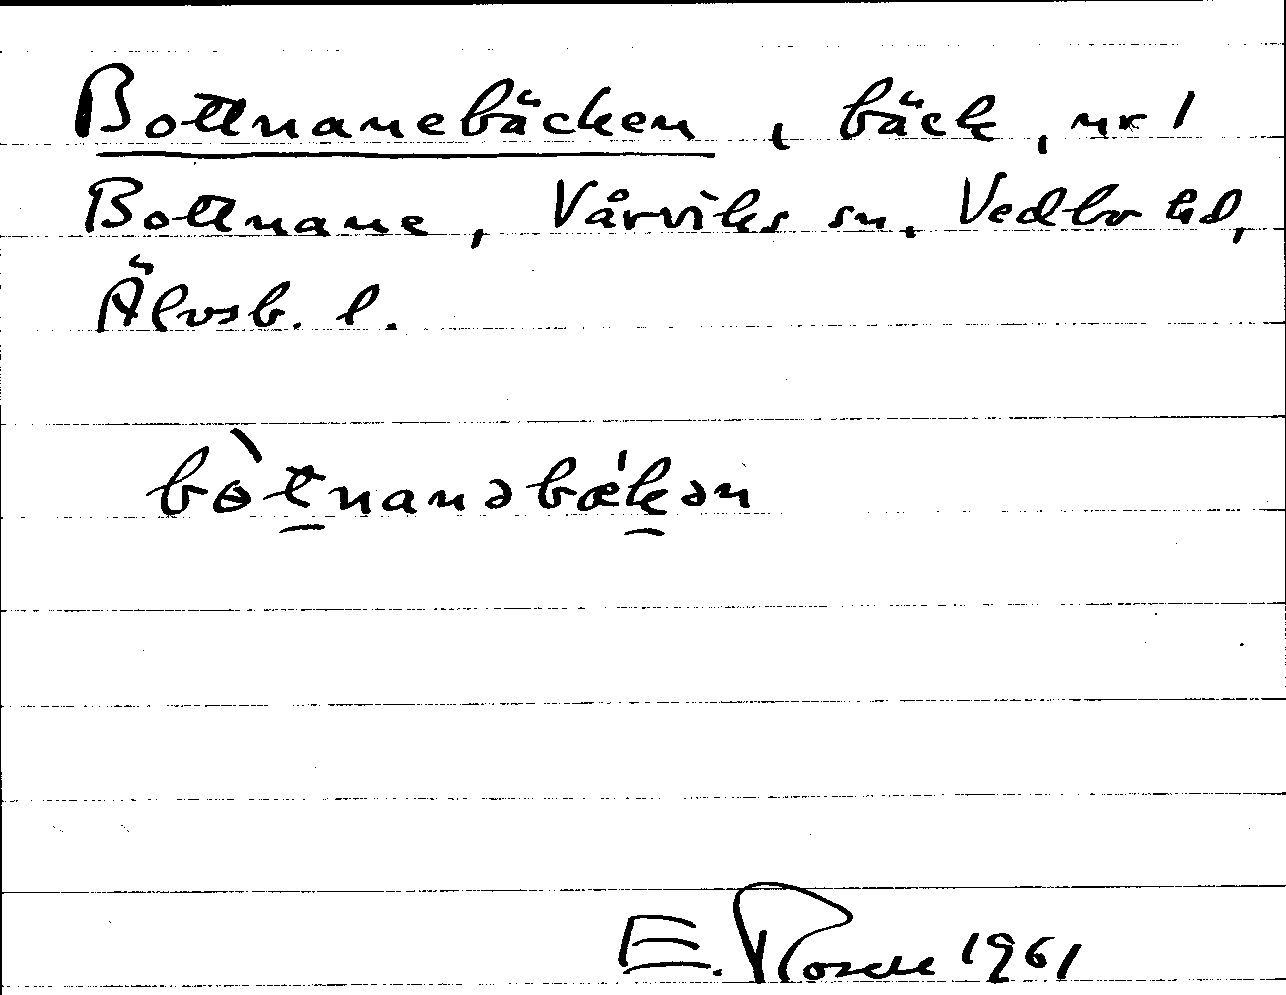 Bottnanebäcken, bäck, nr 1
Bottnane, Vårviks sn, Vedbo hd,
Älvsb. l.
bòt̲nanəbæ'k̲ən
E. Rosell 1961